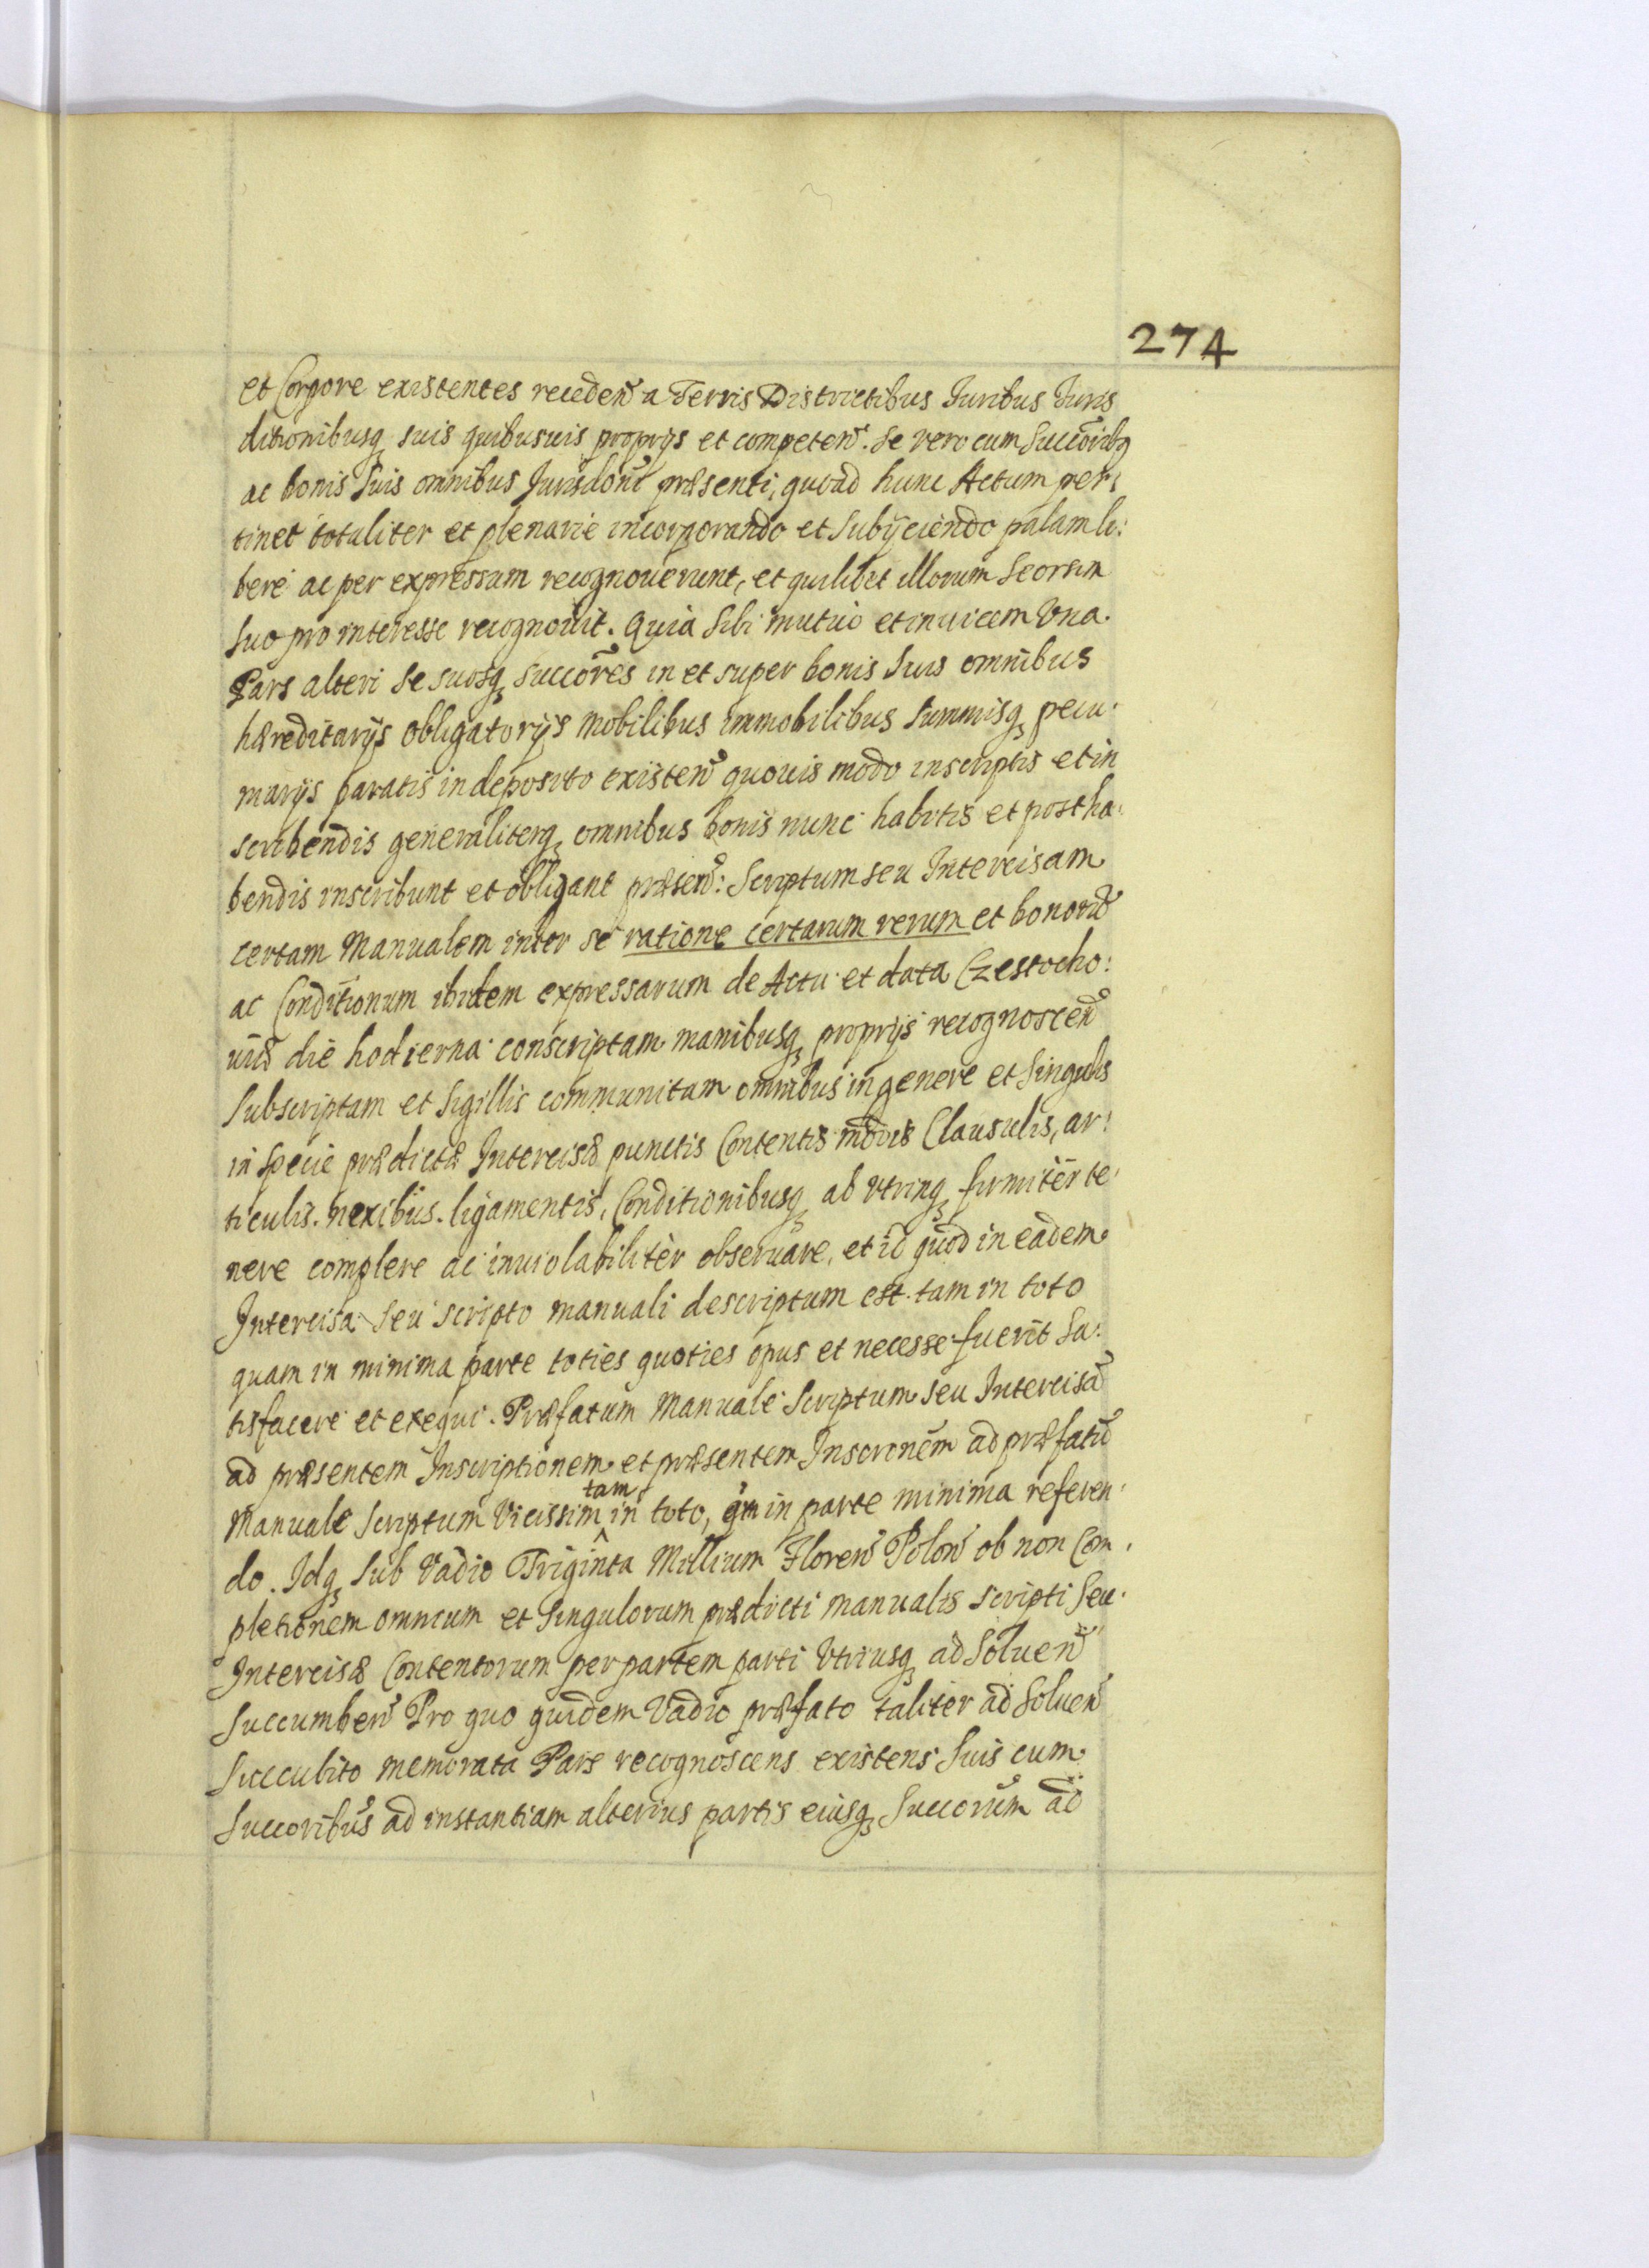 274
et Corpore existentes receden̄ a Terris Districtibus Iuribus Iuris
ditionibusq₃ suis quibusuis proprijs et competen̄. Se vero cum Succorib₉
ac bonis Suis omnibus Jurisdoni præsenti, quoad hunc Actum per:
tinet totaliter et plenarie incorporando et Subijciendo palam li:
bere ac per expressum recognouerunt, et quilibet illorum Seorsim
Suo pro interesse recognouit. Quia Sibi mutuo et inuicem Vna
Pars alteri Se suosq₃ succores in et super bonis Suis omnibus
hæreditarijs obligatorijs mobilibus immobilibus Summisq₃ pecu
niarijs paratis in deposito existen̄ quouis modo inscriptis et in
scribendis generaliterq₃ omnibus bonis nunc habitis et post ha:
bendis inscribunt et obligant præsen̄: Scriptum seu Intercisam
certam Manualem inter se ratione certarum rerum et bonorū
ac Conditionum ibidem expressarum de Actu et data Czestocho:
uiæ die hodierna conscriptam manibusq₃ proprijs recognoscen̄
Subscriptam et Sigillis communitam omnibus in genere et Singulis
in Specie prædictæ Intercisæ punctis Contentis modis Clausulis, ar:
ticulis. nexibus. ligamentis, Conditionibusq₃ ab vtrinq₃ firmiter te
nere complere ac inuiolabiliter obseruare, et id quod in eadem
Intercisa Seu scripto manuali descriptum est tam in toto
quam in minima parte toties quoties opus et necesse fuerit Sa:
tisfacere et exequi. Præfatum Manuale Scriptum seu Intercisā
ad præsentem Inscriptionem et præsentem Inscronem ad præfatū
tam
Manuale Scriptum Vicissim in toto, qm in parte minima referen
do. Idq₃ Sub Vadio Triginta Millium Floren̄ Polon̄ ob non Com
pletionem omnium et Singulorum prædicti manualis scripti Seu
Intercisæ Contentorum per partem parti Vtriusq₃ ad Soluen̄
Succumben̄ Pro quo quidem Vadio præfato taliter ad Soluen̄
Succubito memorata Pars recognoscens existens Suis cum
Succoribus ad instantiam alterius partis eiusq₃ Succorum ad